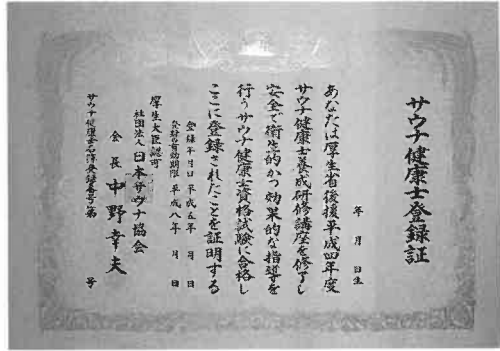 サウナ健康士登録証
年 月 日生
あなたは厚生省後援平成四年度
サウナ健康士養成研修講座を修了し
安全で衛生的かつ効果的な指導を
行うサウナ健康士資格試験に合格し
ここに登録されたことを証明する
登録年月日 平成五年 月 日
登録有効期限 平成八年 月 日
厚生大臣認可
社団法人 日本サウナ協会
会長 中野幸夫
サウナ健康士名簿登録番号第 号